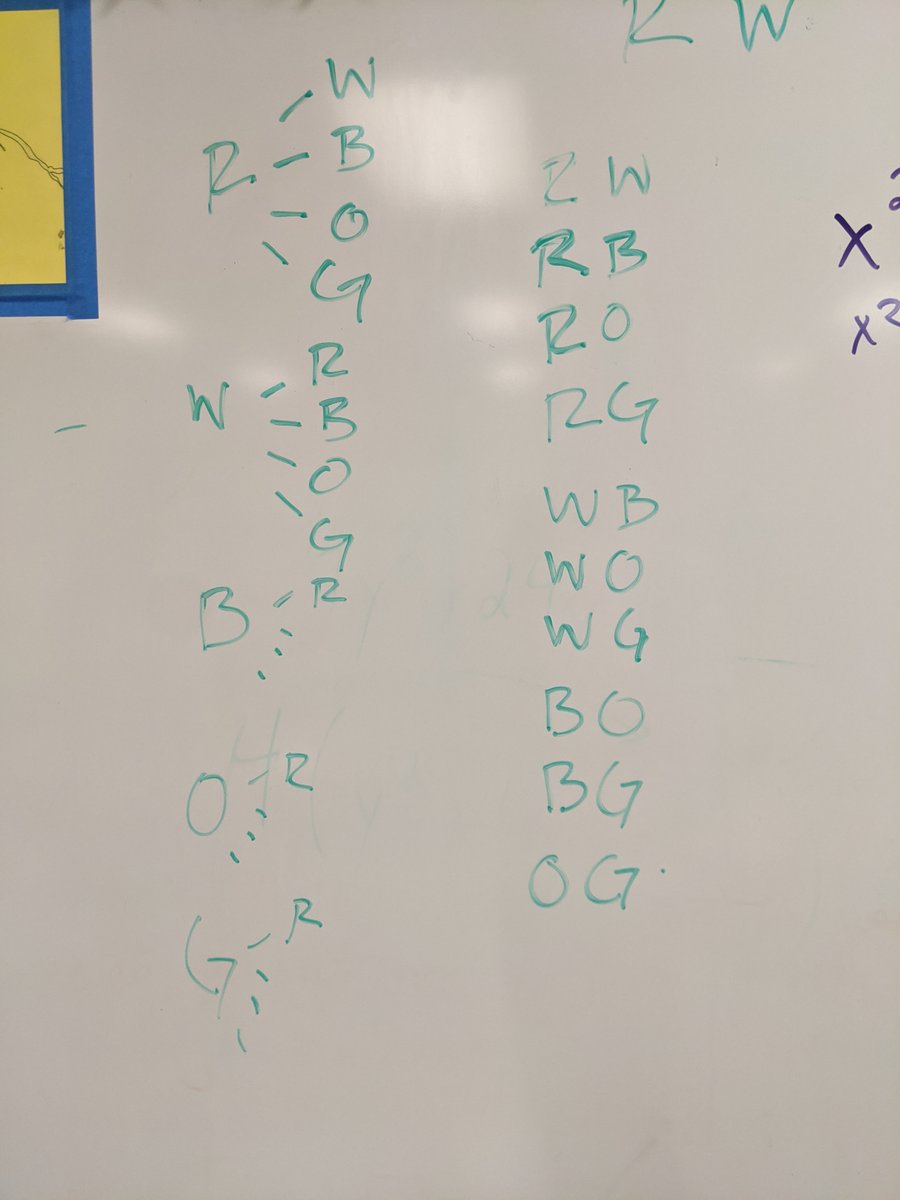 R W
R - W
- B
- O
- G
W - R
- B
- O
- G
B - R
O - R
G - R
R W
R B
R O
R G
W B
W O
W G
B O
B G
O G
x²
x²